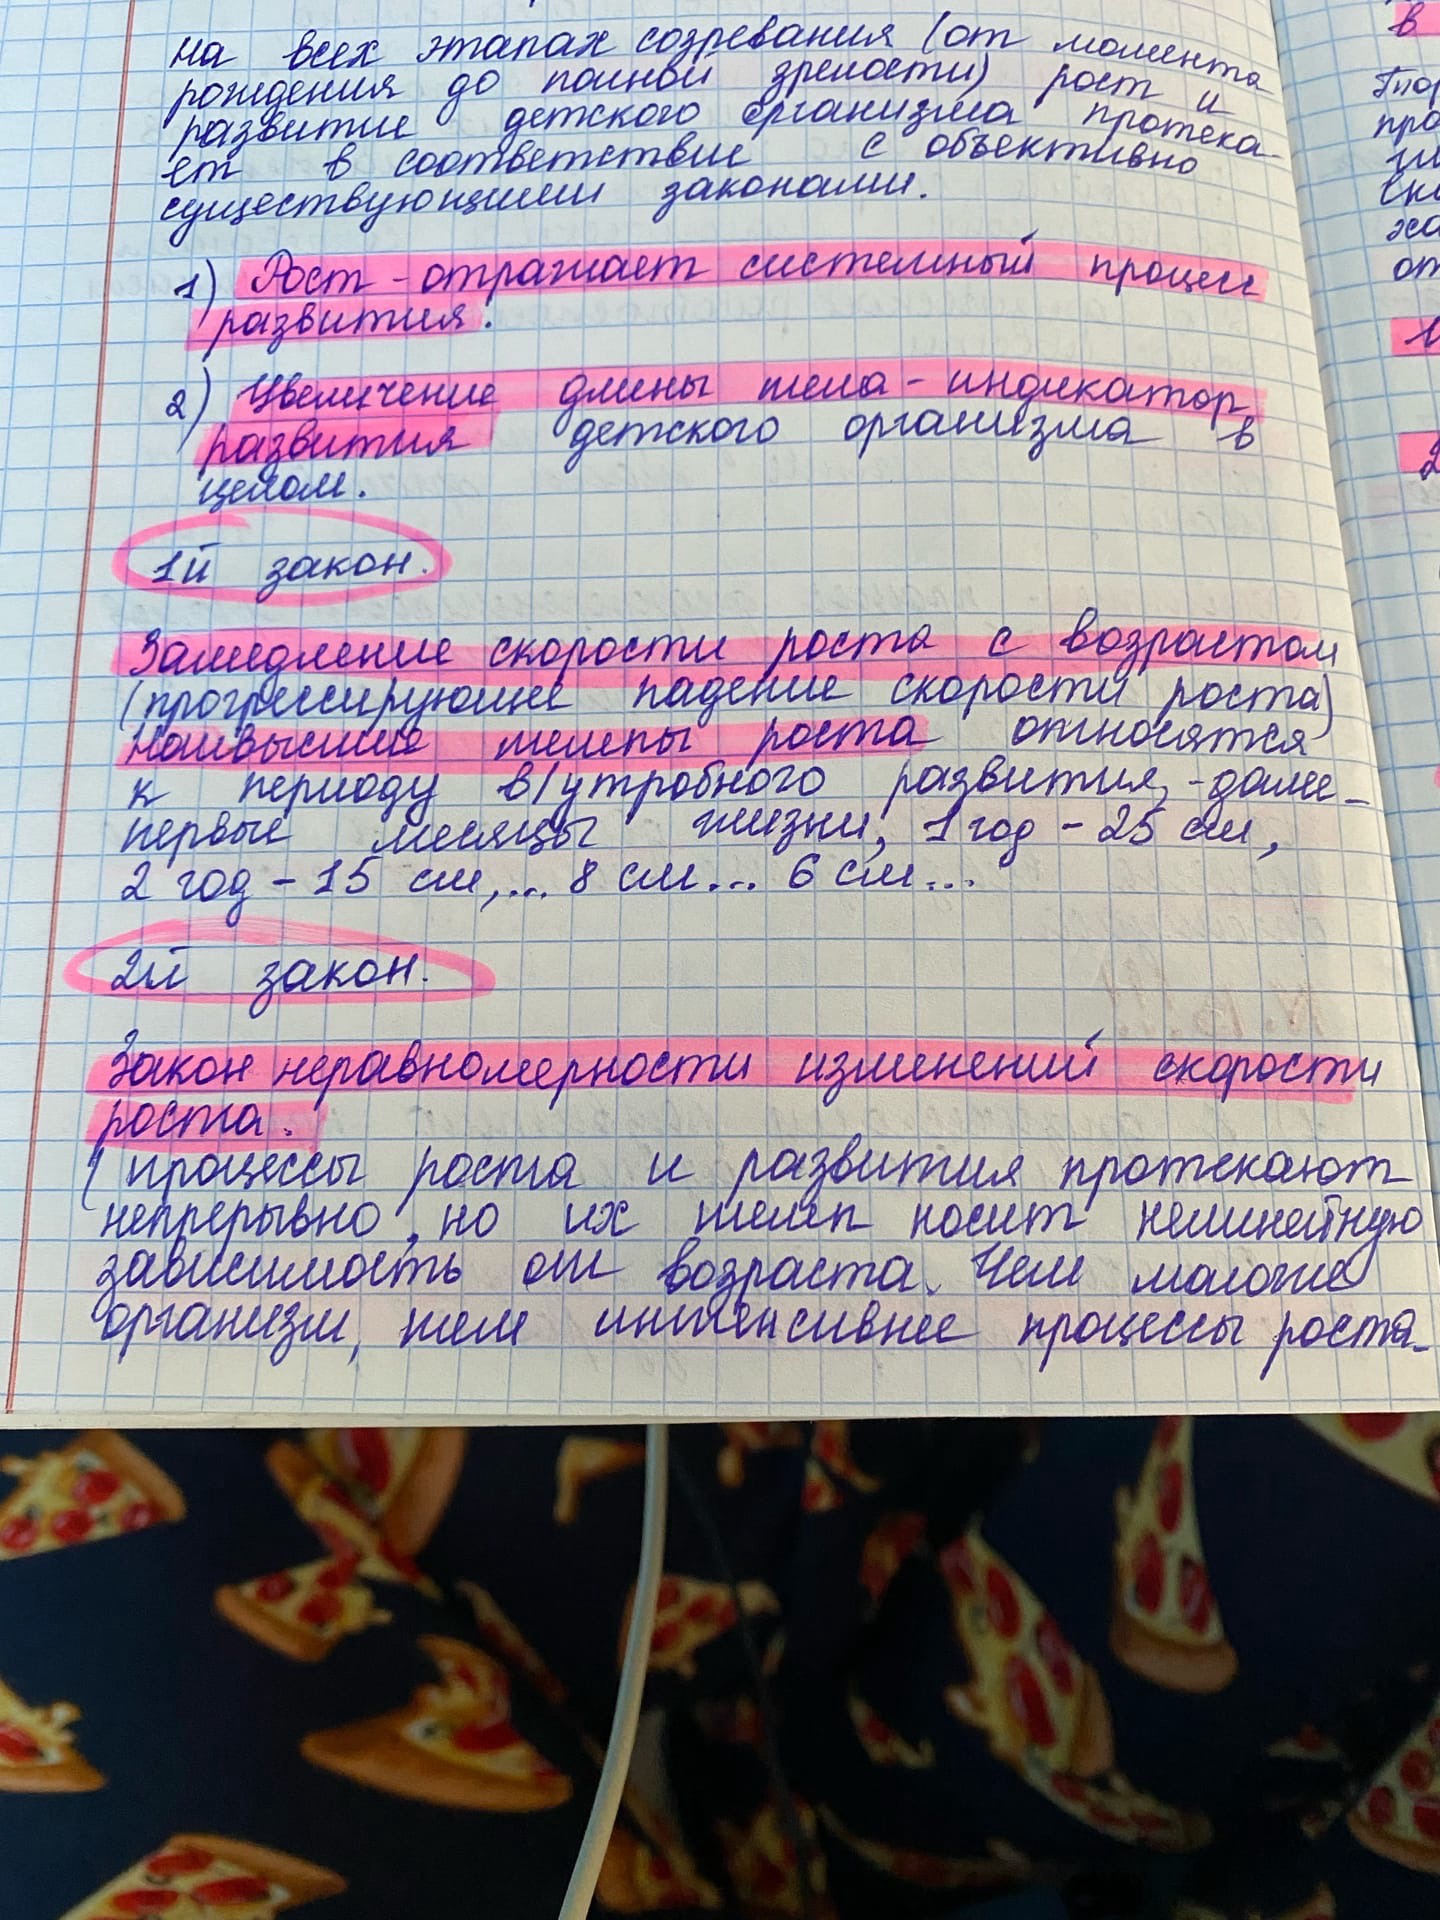 на всех этапах созревания (от момента
рождения до полной зрелости) рост и
развитие детского организма протека-
ет в соответствие с объективно
существующими законами.
1) Рост - отражает системный процесс
развития.
2) Увеличение длины тела - индикатор
развития детского организма в
целом.
1й закон.
Замедление скорости роста с возрастом
(прогрессирующее падение скорости роста)
Наивысшие темпы роста относятся
к периоду в/утробного развития, - далее -
первые месяцы жизни, 1 год - 25 см,
2 год - 15 см,... 8 см... 6 см...
2й закон.
Закон неравномерности изменений скорости
роста.
(процессы роста и развития протекают
непрерывно, но их темп носит нелинейную
зависимость от возраста. Чем моложе
организм, тем интенсивнее процессы роста-
в
1
2